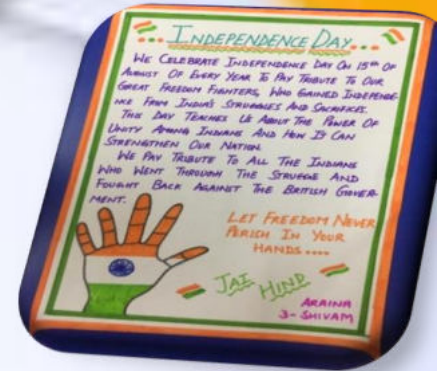 ...INDEPENDENCE DAY...
WE CELEBRATE INDEPENDENCE DAY ON 15TH OF
AUGUST OF EVERY YEAR TO PAY TRIBUTE TO OUR
GREAT FREEDOM FIGHTERS, WHO GAINED INDEPENDE-
NCE FROM INDIA'S STRUGGLES AND SACRIFICES.
THIS DAY TEACHES US ABOUT THE POWER OF
UNITY AMONG INDIANS AND HOW IT CAN
STRENGTHEN OUR NATION.
WE PAY TRIBUTE TO ALL THE INDIANS
WHO WENT THROUGH THE STRUGGLE AND
FOUGHT BACK AGAINST THE BRITISH GOVER-
MENT.
LET FREEDOM NEVER
PERISH IN YOUR
HANDS....
JAI HIND
ARAINA
3-SHIVAM